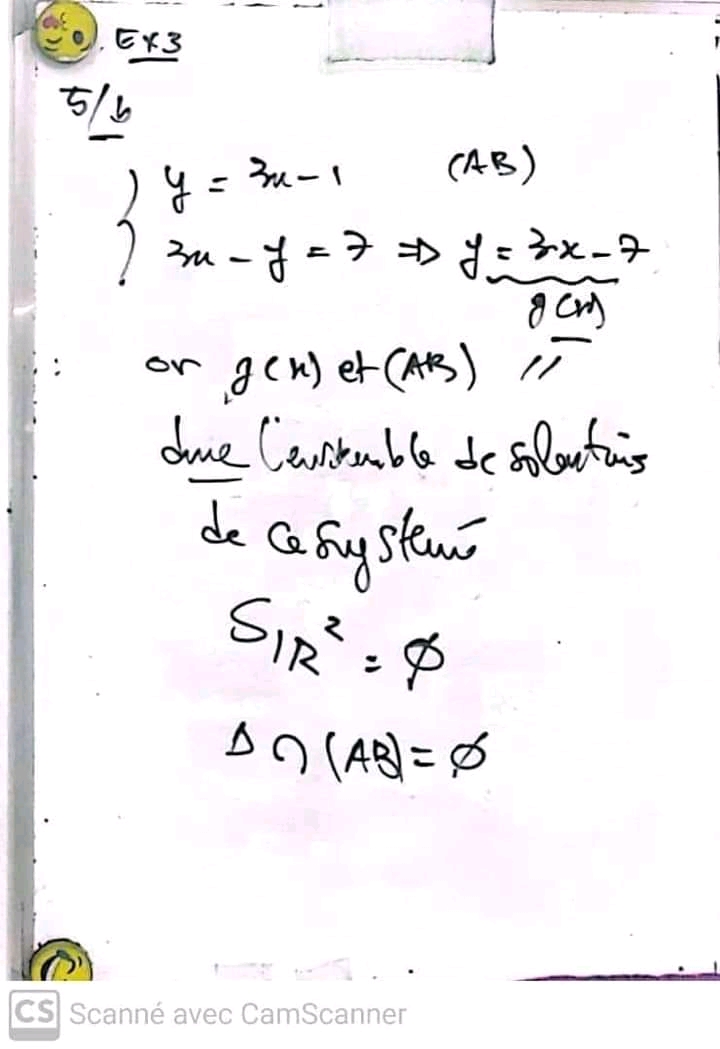 EX3
5/b
y = 3x - 1 (AB)
3x - y = 7 ⇒ y = 3x - 7
g(x)
or g(x) et (AB) //
donc l'ensemble de solutions
de ce système
S_{IR²} = ∅
Δ ∩ (AB) = ∅
CS Scanné avec CamScanner